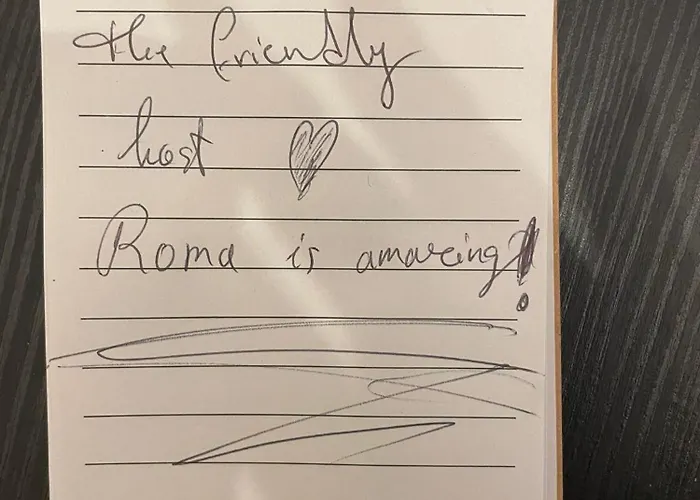 the friendly
host
Roma is amazing!